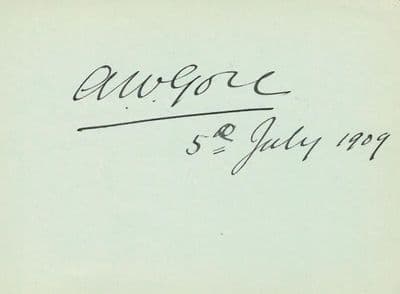 A.W. Gore
5th July 1909